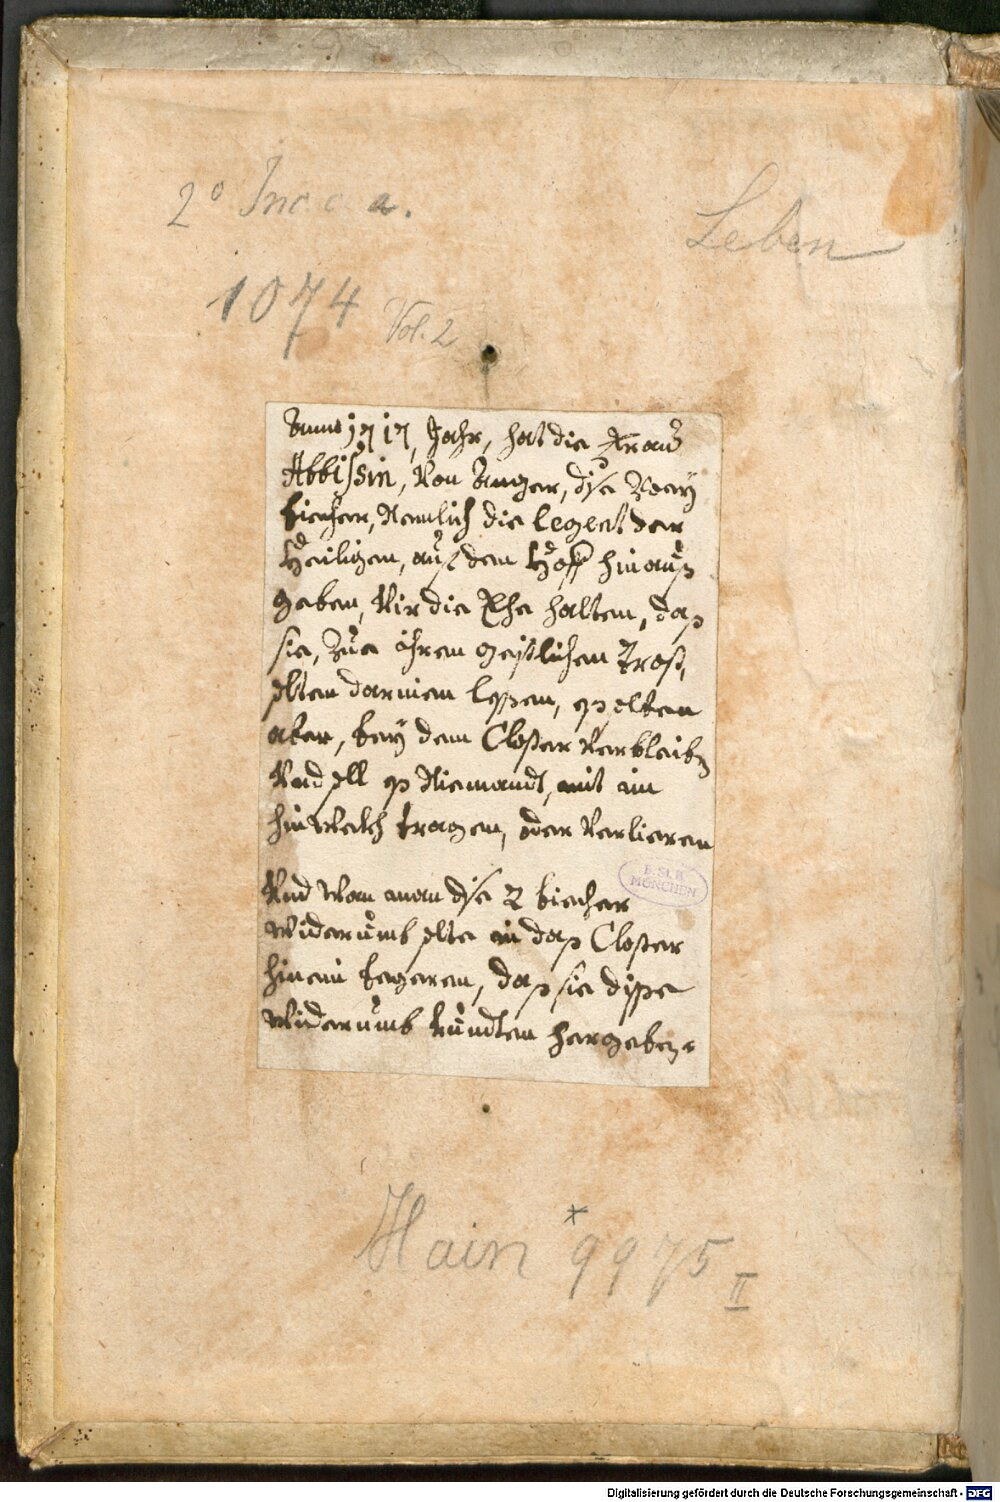 2° Inc. c. a.
Leben
1074
Vol. 2
Anno 1717 Jahr, hat die Frau
Abbißin, Von Anger, dise Zway
biecher, Nemlich die legent der
Heiligen, auß dem Hoff hinauß
geben, Vir die Khe halten, daß
sie, Zue ihren geistlichen Trost,
solten darinen leßen, eß solten
aber, bey dem Closter Verbleiben
Vnd soll eß Niemandt, mit im
hinwekh tragen, oder Verlieren
Vnd wan man dise 2 biecher
widerumb solte in daß Closter
hinein begeren, daß sie diße
widerumb kundten hergeben.
B.St.B.
MÜNCHEN
Hain * 9975
II
Digitalisierung gefördert durch die Deutsche Forschungsgemeinschaft - DFG